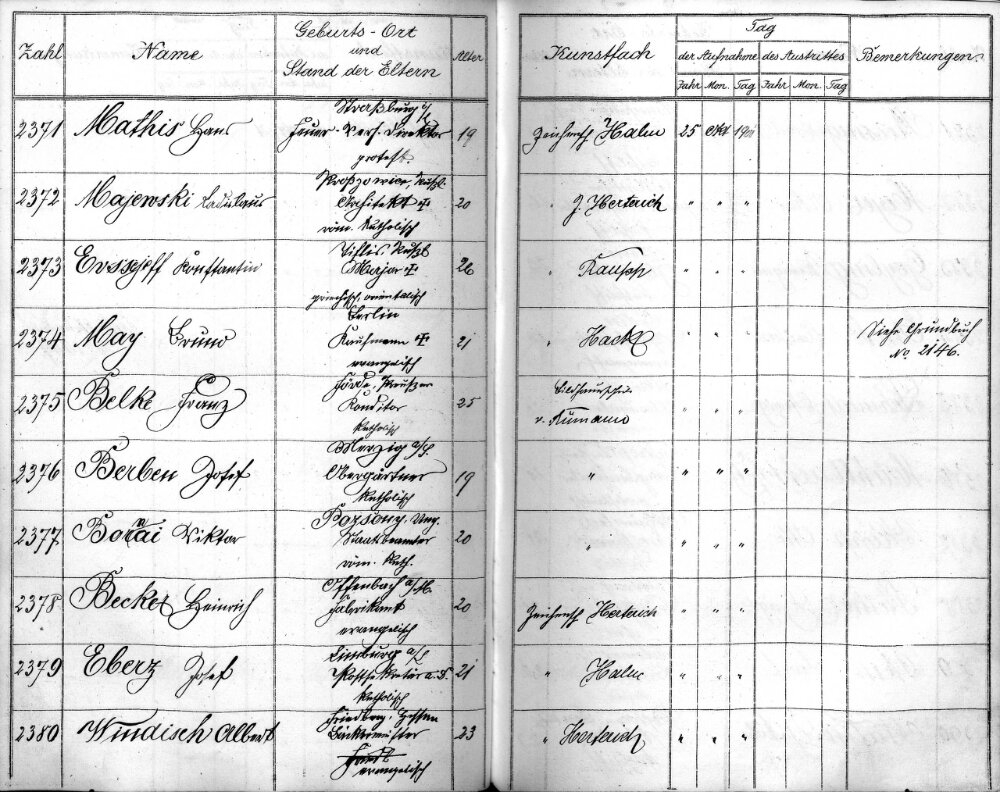 Zahl Name Geburts-Ort und Stand der Eltern Alter Kunstfach Tag der Aufnahme des Austrittes Bemerkungen.
Jahr Mon. Tag Jahr Mon. Tag
Straßburg i/E
2371 Mathis Hans Feuer-Vers. Direktor 19 Zeichensch Halm 25 Okt 1901
protest.
Proszowice, Rußl.
2372 Majewski Ladislaus Architekt † 20 " J. Herterich " " "
röm. Katholisch
Tiflis, Rußl
2373 Konstantin Major † 26 " Raupp " " "
griechisch, orientalisch
Berlin
2374 May Bruno Kaufmann † 21 " Hackl " " Siehe Grundbuch
evangelisch No. 2146.
Hörde, Preußen
2375 Belke Franz Konditor 25 Bildhauerschule " " "
Katholisch v. Rümann
Merzig a/S.
2376 Berben Josef Obergärtner 19 " " " "
Katholisch
Pozsony, Ung.
2377 Viktor Staatsbeamter 20 " " " "
röm. Kath.
Offenbach a/M.
2378 Becker Heinrich Fabrikant 20 Zeichensch Herterich " " "
evangelisch
Limburg a/L
2379 Eberz Josef Postsekretär a. D. 21 " Halm " " "
Katholisch
Friedberg, Hessen
2380 Windisch Albert Bäckermeister 23 " Herterich " " "
evangelisch